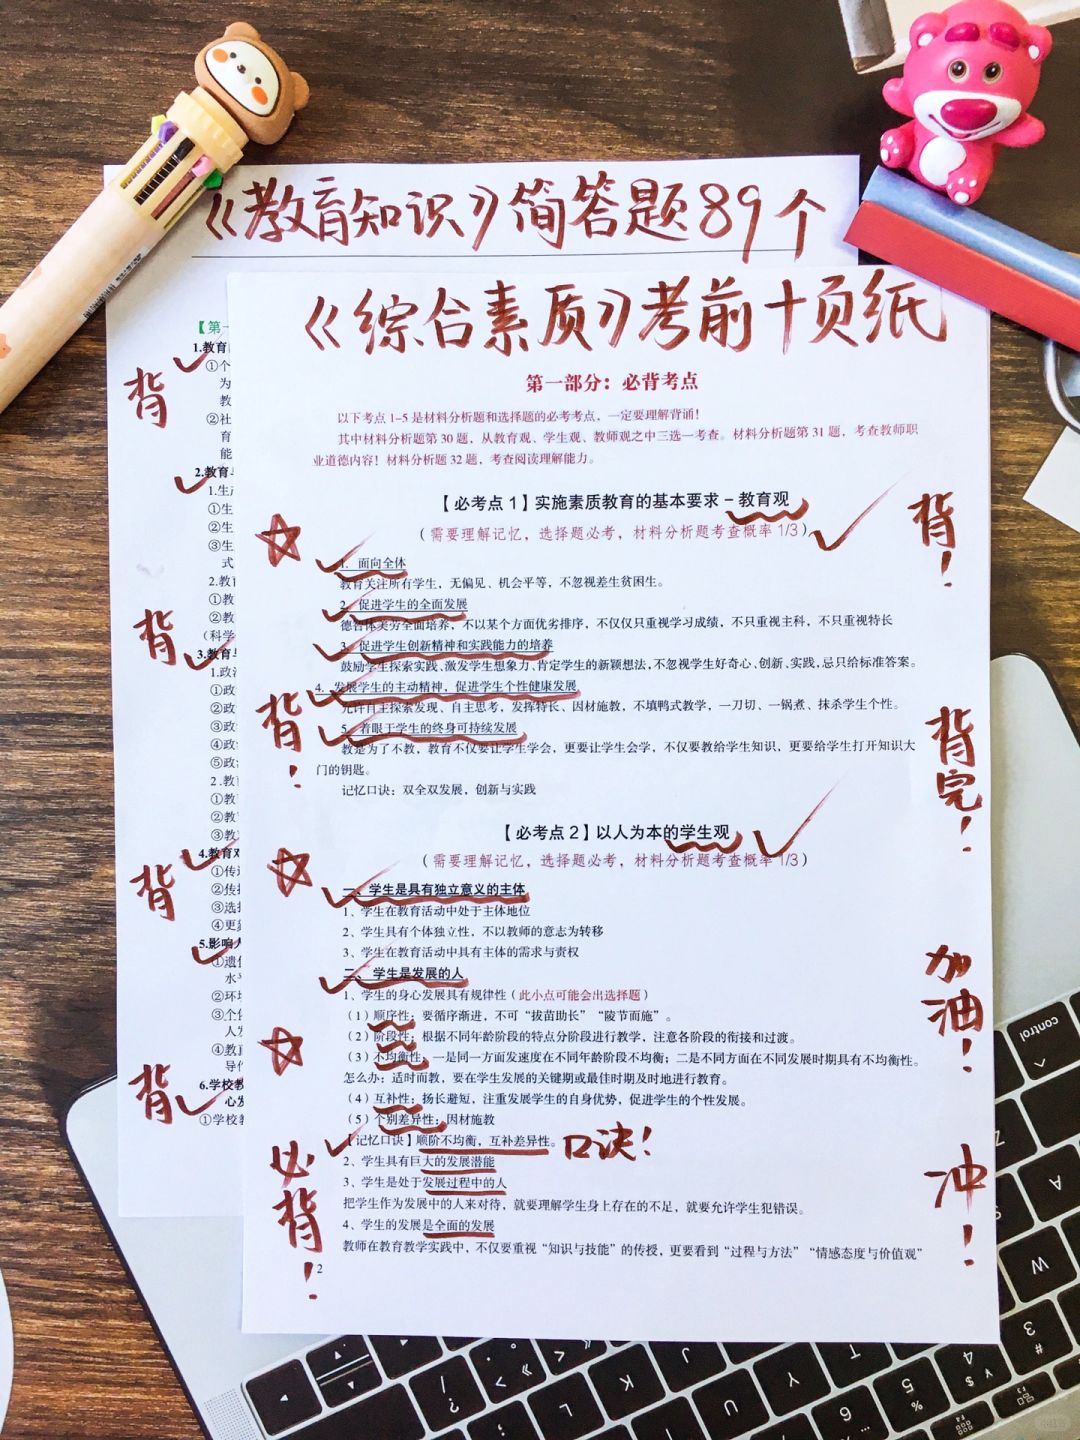 《教育知识》简答题89个
《综合素质》考前十页纸
第一部分：必背考点
以下考点 1-5 是材料分析题和选择题的必考考点，一定要理解背诵！
其中材料分析题第 30 题，从教育观、学生观、教师观之中三选一考查。材料分析题第 31 题，考查教师职
业道德内容！材料分析题 32 题，考查阅读理解能力。
【必考点 1】实施素质教育的基本要求 – 教育观
（需要理解记忆，选择题必考，材料分析题考查概率 1/3）
1. 面向全体
教育关注所有学生，无偏见、机会平等，不忽视差生贫困生。
2. 促进学生的全面发展
德智体美劳全面培养，不以某个方面优劣排序，不仅仅只重视学习成绩，不只重视主科，不只重视特长
3. 促进学生创新精神和实践能力的培养
鼓励学生探索实践、激发学生想象力、肯定学生的新颖想法，不忽视学生好奇心、创新、实践，忌只给标准答案。
4. 发展学生的主动精神，促进学生个性健康发展
允许自主探索发现、自主思考，发挥特长、因材施教，不填鸭式教学，一刀切、一锅煮、抹杀学生个性。
5. 着眼于学生的终身可持续发展
教是为了不教，教育不仅要让学生学会，更要让学生会学，不仅要教给学生知识，更要给学生打开知识大
门的钥匙。
记忆口诀：双全双发展，创新与实践
【必考点 2】以人为本的学生观
（需要理解记忆，选择题必考，材料分析题考查概率 1/3）
一、学生是具有独立意义的主体
1、学生在教育活动中处于主体地位
2、学生具有个体独立性，不以教师的意志为转移
3、学生在教育活动中具有主体的需求与责权
二、学生是发展的人
1、学生的身心发展具有规律性（此小点可能会出选择题）
（1）顺序性：要循序渐进，不可“拔苗助长”“陵节而施”。
（2）阶段性：根据不同年龄阶段的特点分阶段进行教学，注意各阶段的衔接和过渡。
（3）不均衡性：一是同一方面发速度在不同年龄阶段不均衡；二是不同方面在不同发展时期具有不均衡性。
怎么办：适时而教，要在学生发展的关键期或最佳时期及时地进行教育。
（4）互补性：扬长避短，注重发展学生的自身优势，促进学生的个性发展。
（5）个别差异性：因材施教
【记忆口诀】顺阶不均衡，互补差异性。 口诀！
2、学生具有巨大的发展潜能
3、学生是处于发展过程中的人
把学生作为发展中的人来对待，就要理解学生身上存在的不足，就要允许学生犯错误。
4、学生的发展是全面的发展
教师在教育教学实践中，不仅要重视“知识与技能”的传授，更要看到“过程与方法”“情感态度与价值观”
2
背！
必背！
背！
背完！
加油！
冲！
【第一
1.教育
①个
为
教
②社
育
能
2.教育
1.生产
①生
②生
③生
式
2.教育
①教
②教
（科学
3.教育与
1.政治
①政
②政
③政
④政
⑤政
2.教育
①教
②教
③教
4.教育对
①传
②传
③选
④更
5.影响人
①遗传
水平
②环境
③个体
人发
④教育
导作
6.学校教
心发
①学校教
背
背
背
背
control
A
W
3
4
$
5
%
6
T
Y
J
K
L
F3
F4